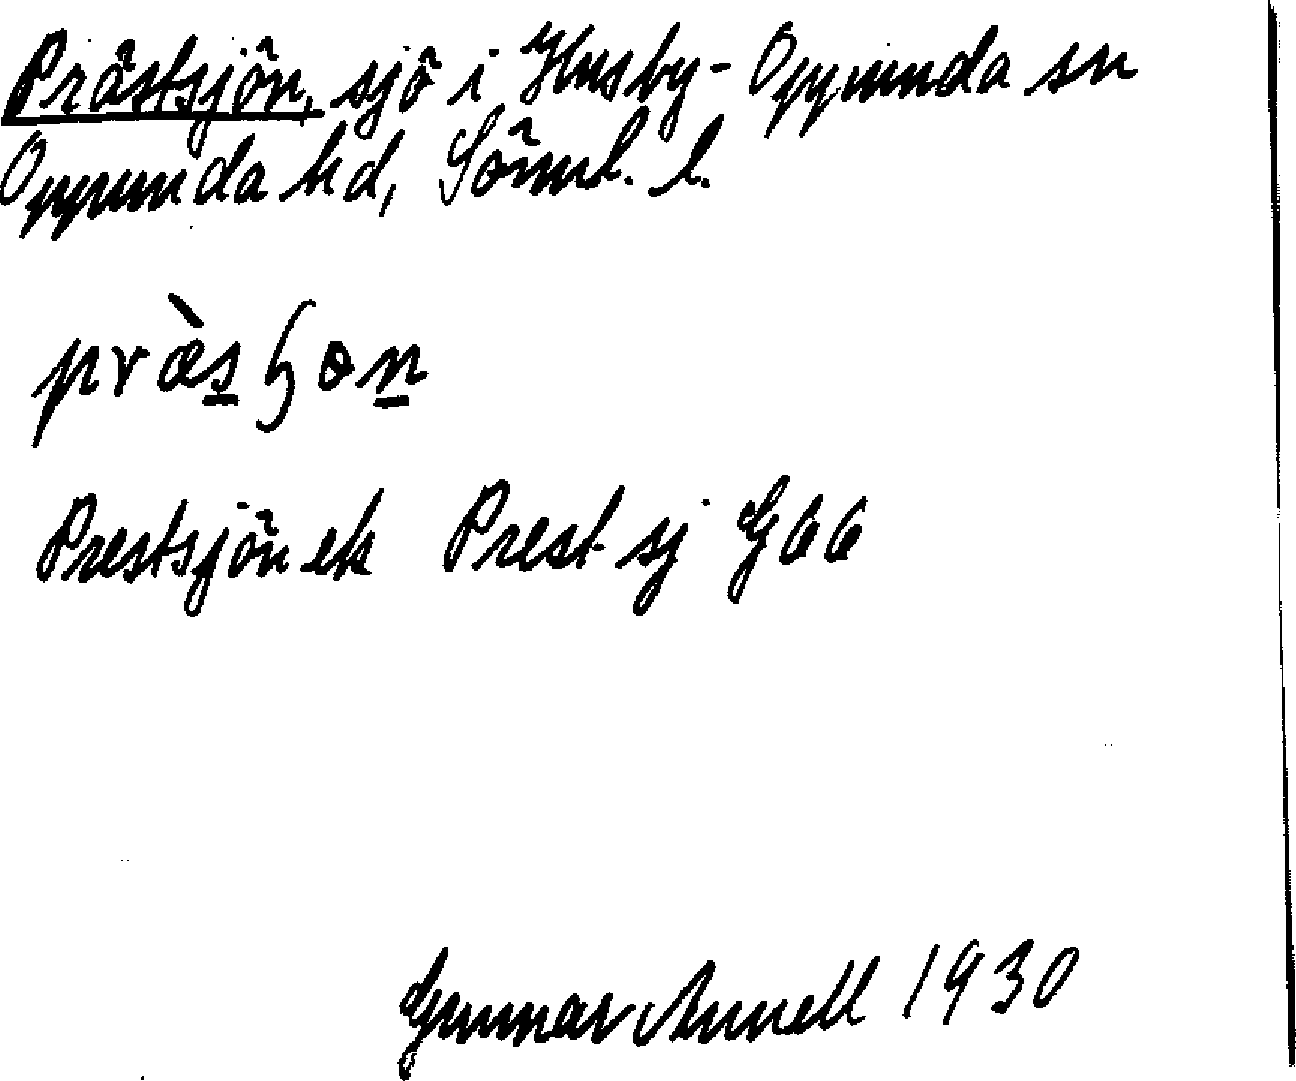 Prästsjön, sjö i Husby-Oppunda sn
Oppunda hd, Sörml. l.
præ̀sɧon
Prestsjön ek Prest sj G66
Gunnar Annell 1930